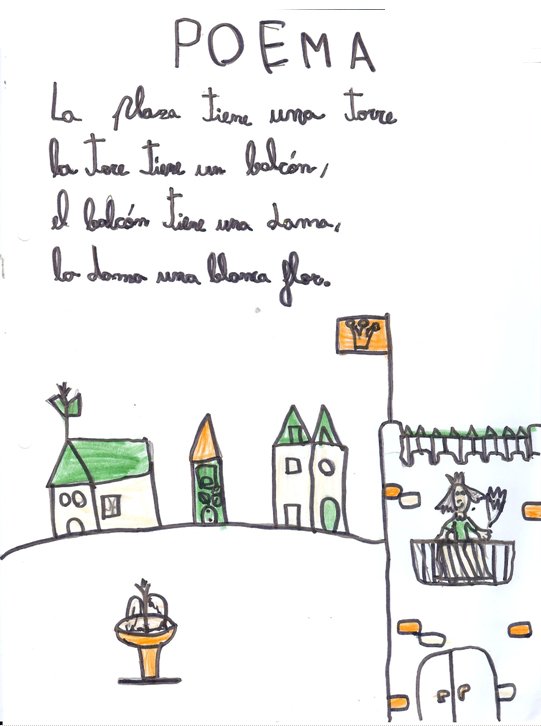 POEMA
La plaza tiene una torre
la tore tiene un balcón,
el balcón tiene una dama,
la dama una blanca flor.